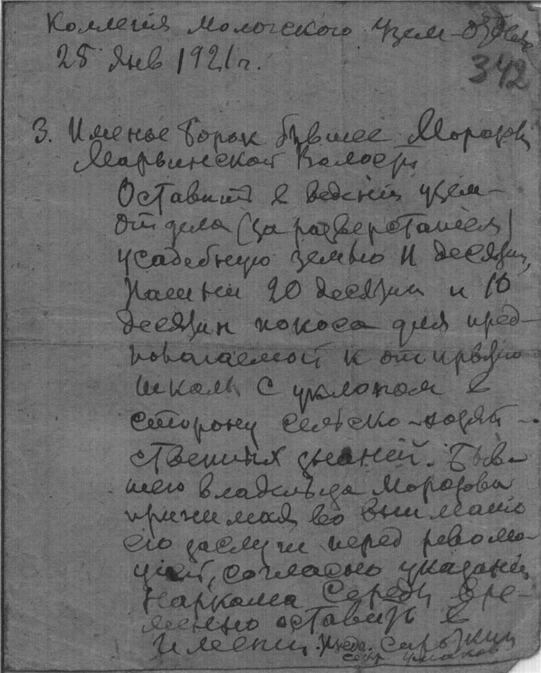 Коллегия Мологского Узем-отдела
25 Янв 1921 г.
342
3. Именье Борок бывшее Морозова
Марьинской Волости
Оставить в веденiи уzем-
отдела (за разверстанiем)
усадебную землю 11 десятин,
пашни 20 десятин и 10
десятин покоса для пред-
полагаемой к открытию
школы с уклоном в
сторону сельско-хозяй-
ственных знаний. Быв-
шего владельца Морозова
принимая во внимание
его заслуги перед револю-
цией, согласно указаний
Наркома Середы вре-
менно оставить в
имении. Пред.
секр